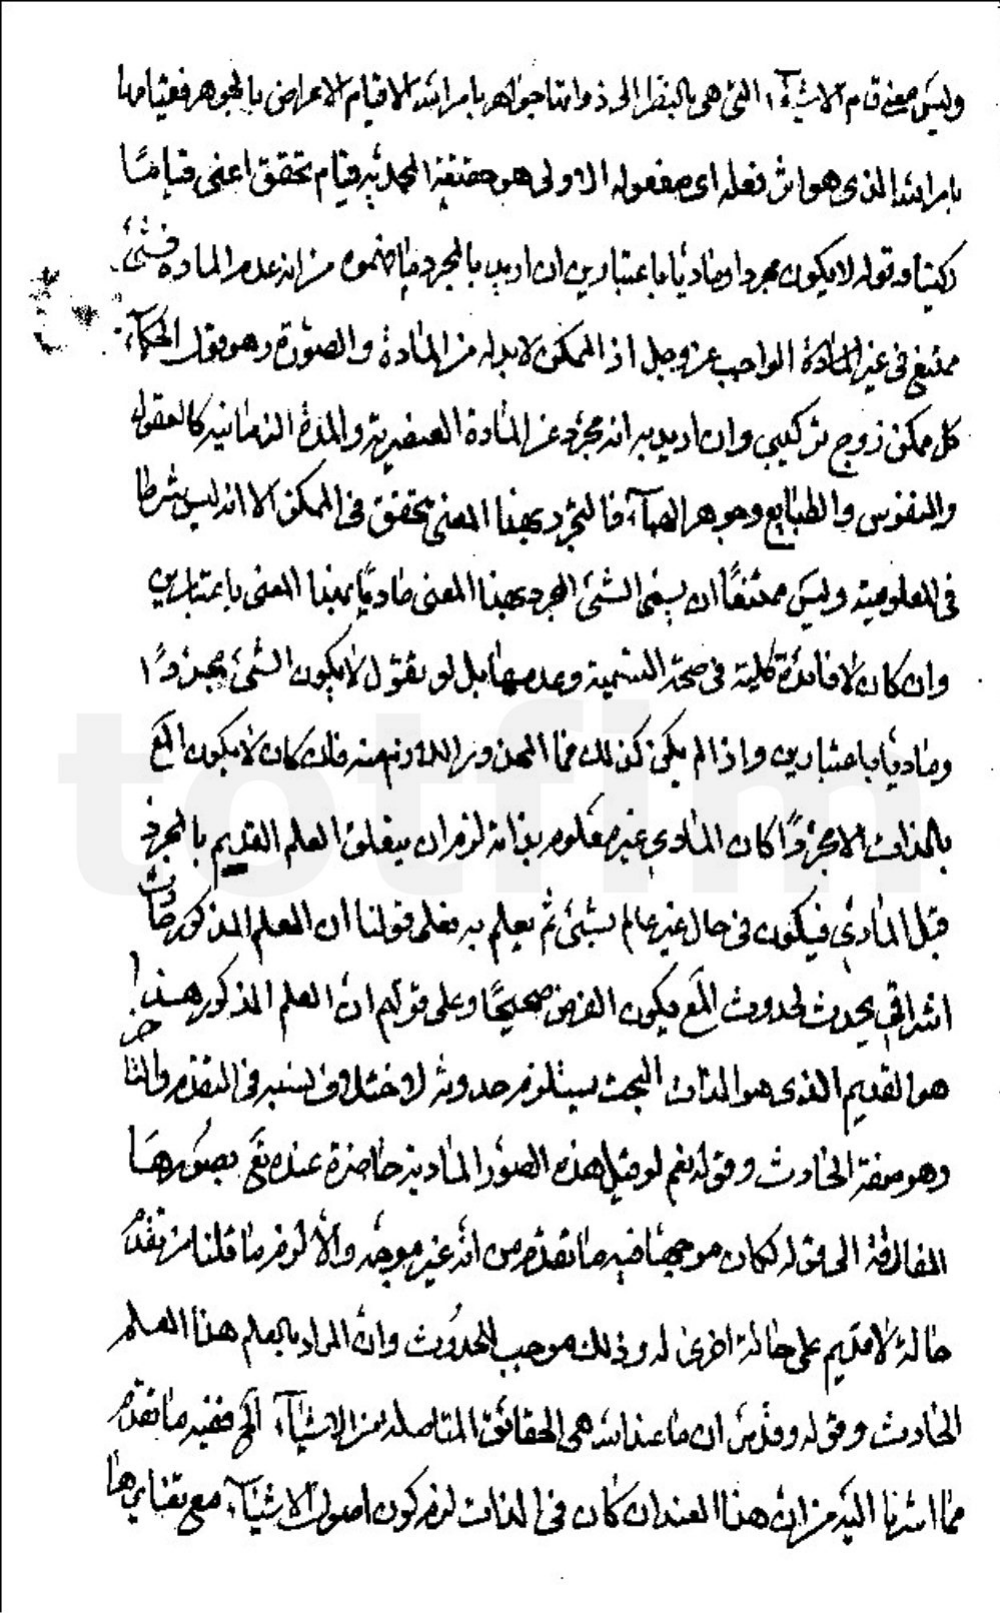 وليس معنى قيام الاشيآء التى هى بالنظر الى ذواتها جواهر بامر الله الا قيام الاعراض بالجوهر فقيامها
بامر الله الذى هو اثر فعله اى مفعوله الاولى هو حقيقة المحمدية قيام تحقق اعنى قياما
ركنيا وقوله لا يكون مجردا وماديا باعتبارين ان اريد بالمجرد ما ضموه من انه عدم المادة فشئ
ممتنع فى غير المادة الواجب عز وجل اذ الممكن لا بد له من المادة والصورة وهو قول الحكمآء
كل ممكن زوج تركيبى وان اريد به انه مجرد عن المادة العنصرية والمدة الزمانية كالعقول
والنفوس والطبايع وجوهر الهبآء فالتجرد بهذا المعنى تحقق فى الممكن الا انه ليس شرطا
فى المعلومية وليس ممتنعًا ان يسمى الشئ المجرد بهذا المعنى ماديًا بهذا المعنى باعتبارين
وان كان لا فائدة كلية فى صحة التسمية وعدمها بل لو نقول لا يكون الشئ مجردًا
وماديا باعتبارين واذا لم يكن كذلك فما المحذور اللازم منه فلئن كان لا يكون المع
بالذات الا مجردًا كان المادى غير معلوم بذاته لزم ان يتعلق العلم القديم بالمجرد
قبل المادى فيكون فى حال غير عالم بشئ ثم يعلم به فعلى قولنا ان العلم المذكور حادث
اشراقى يحدث لحدوث المع يكون الفرض صحيحًا وعلى قولكم ان العلم المذكور هذا
هو القديم الذى هو الذات البحت يستلزم حدوثه لاختلاف نسبه فى التقدم والتاخر
وهو صفة الحادث وقوله نعم لو قيل هذه الصور المادية حاضرة عنده تع بصورها
المفارقة الى قوله لكان موجها فيه ما تقدم من انه غير موجه والا لزم ما قلنا من تقدم
حالة لا قديم على حالة اخرى له وذلك موجب الحدوث وان المراد بالعلم هذا العلم
الحادث وقوله وقد مر ان ما عند الله هى الحقائق المتاصلة من الاشيآء الخ ففيه ما تقدم
مما اشرنا اليه من ان هذا العند ان كان فى الذات لزم كون اصول الاشيآء مع تغايرها
totfim